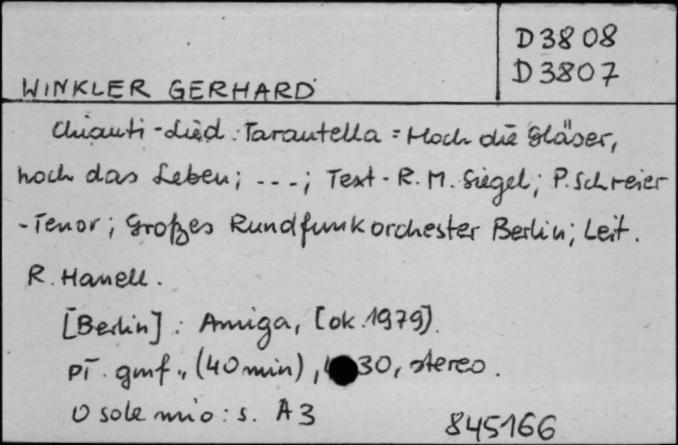 D 3808
D 3807
WINKLER GERHARD
Chianti-Lied : Tarantella = Hoch die Gläser,
hoch das Leben; ---; Text - R. M. Siegel; P. Schreier
- Tenor; Großes Rundfunkorchester Berlin; Leit.
R. Hanell.
[Berlin] : Amiga, [ok. 1979].
pł. gmf., (40 min), 30, stereo.
O sole mio : s. A3
845166